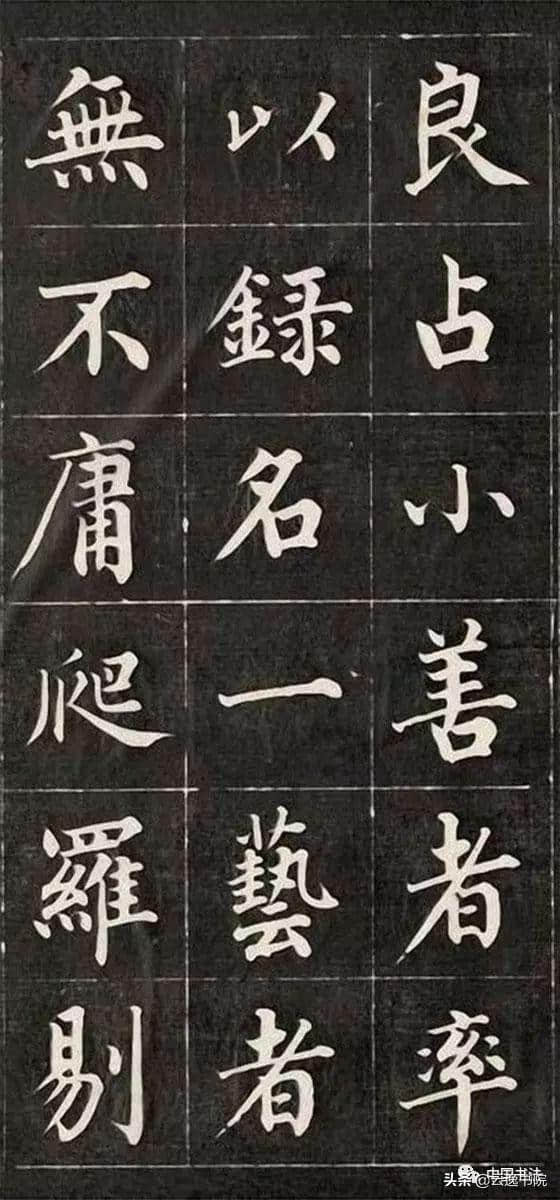 良占小善者率
以録名一藝者
無不庸爬羅剔
中国书法
头条@云逸书院